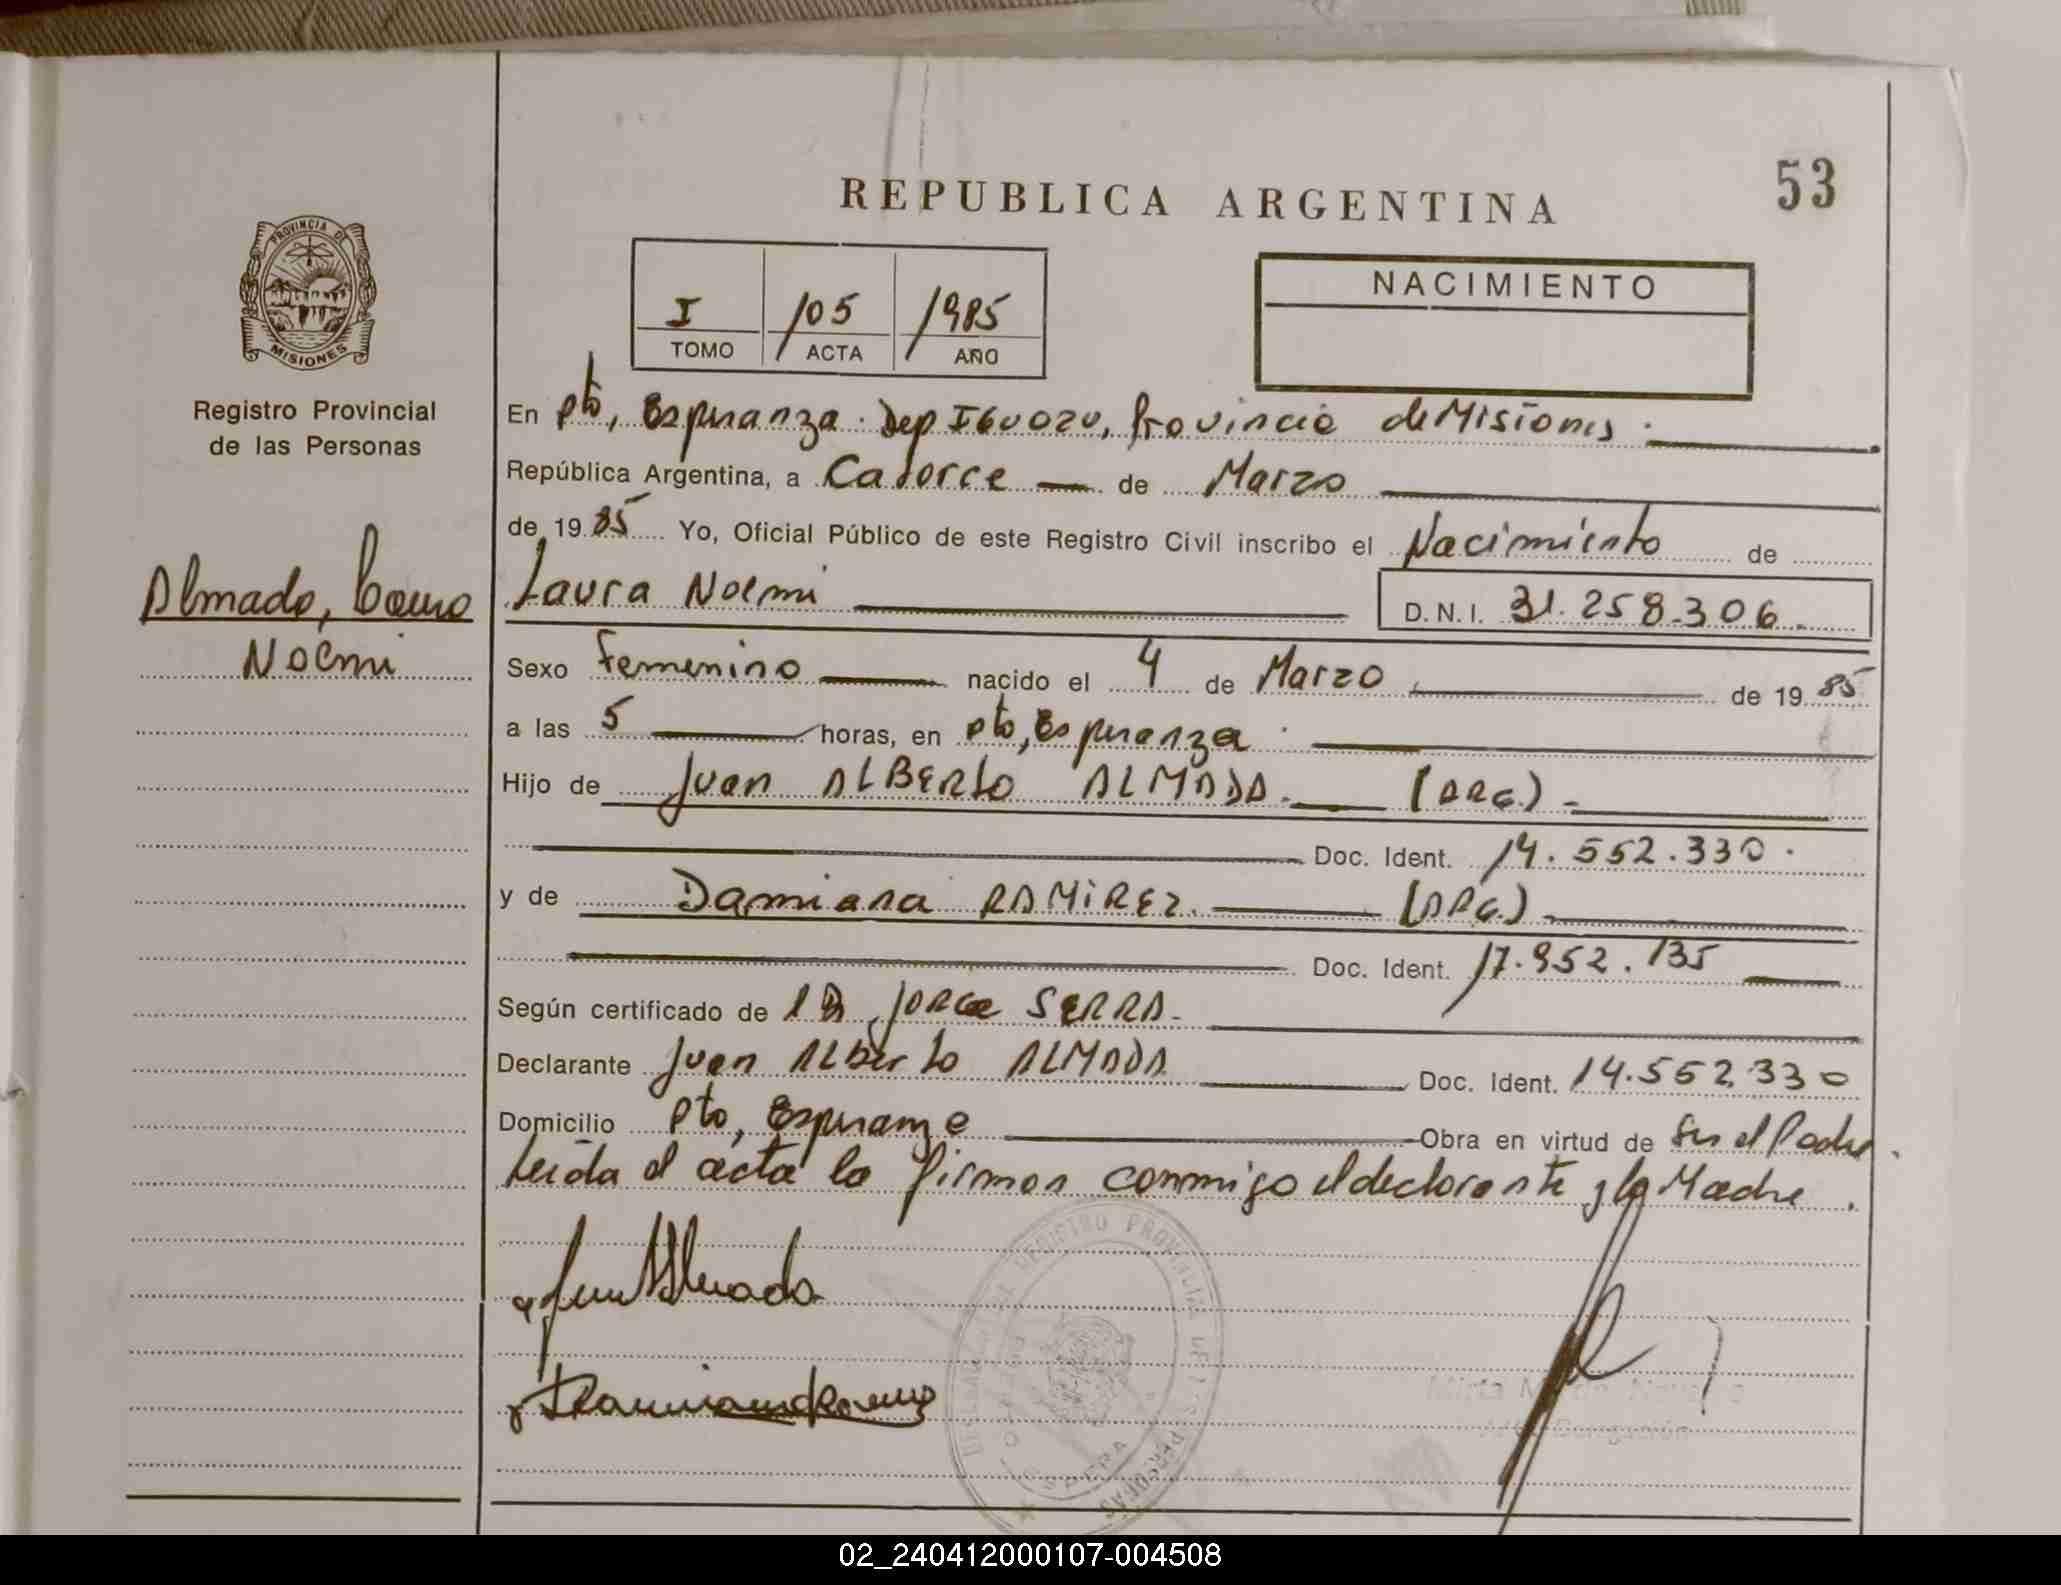 53
REPUBLICA ARGENTINA
PROVINCIA DE
MISIONES
Registro Provincial
de las Personas
Almada, Laura
Noemi
I /05 /1985
TOMO ACTA AÑO
NACIMIENTO
En Pto, Esperanza. Dep IGUAZU, Provincia de Misiones.
República Argentina, a Catorce de Marzo
de 1985 Yo, Oficial Público de este Registro Civil inscribo el Nacimiento de
Laura Noemi D.N.I. 31.258.306.
Sexo Femenino nacido el 4 de Marzo de 1985
a las 5 horas, en Pto, Esperanza.
Hijo de Juan ALBERTO ALMADA. (ARG.)
Doc. Ident. 14.552.330.
y de Damiana RAMIREZ. (ARG.)
Doc. Ident. 17.952.135
Según certificado de JORGE SERRA.
Declarante Juan Alberto ALMADA Doc. Ident. 14.552.330
Domicilio Pto, Esperanza Obra en virtud de Ser el Padre.
Leida el acta la firman conmigo el declarante y la Madre.
REGISTRO PROVINCIAL DE LAS PERSONAS
02_240412000107-004508